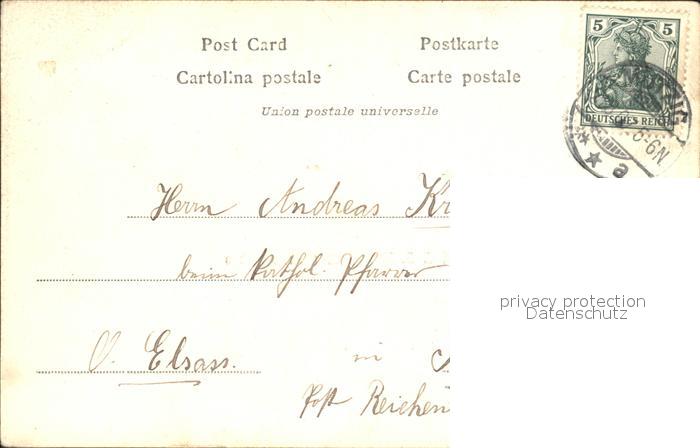 Post Card Postkarte
Cartolina postale Carte postale
Union postale universelle
5 5
DEUTSCHES REICH
6-6N
a
Herrn Andreas Kr
beim Kathol. Pfarrer
privacy protection
Datenschutz
O. Elsass. in
Post Reichen